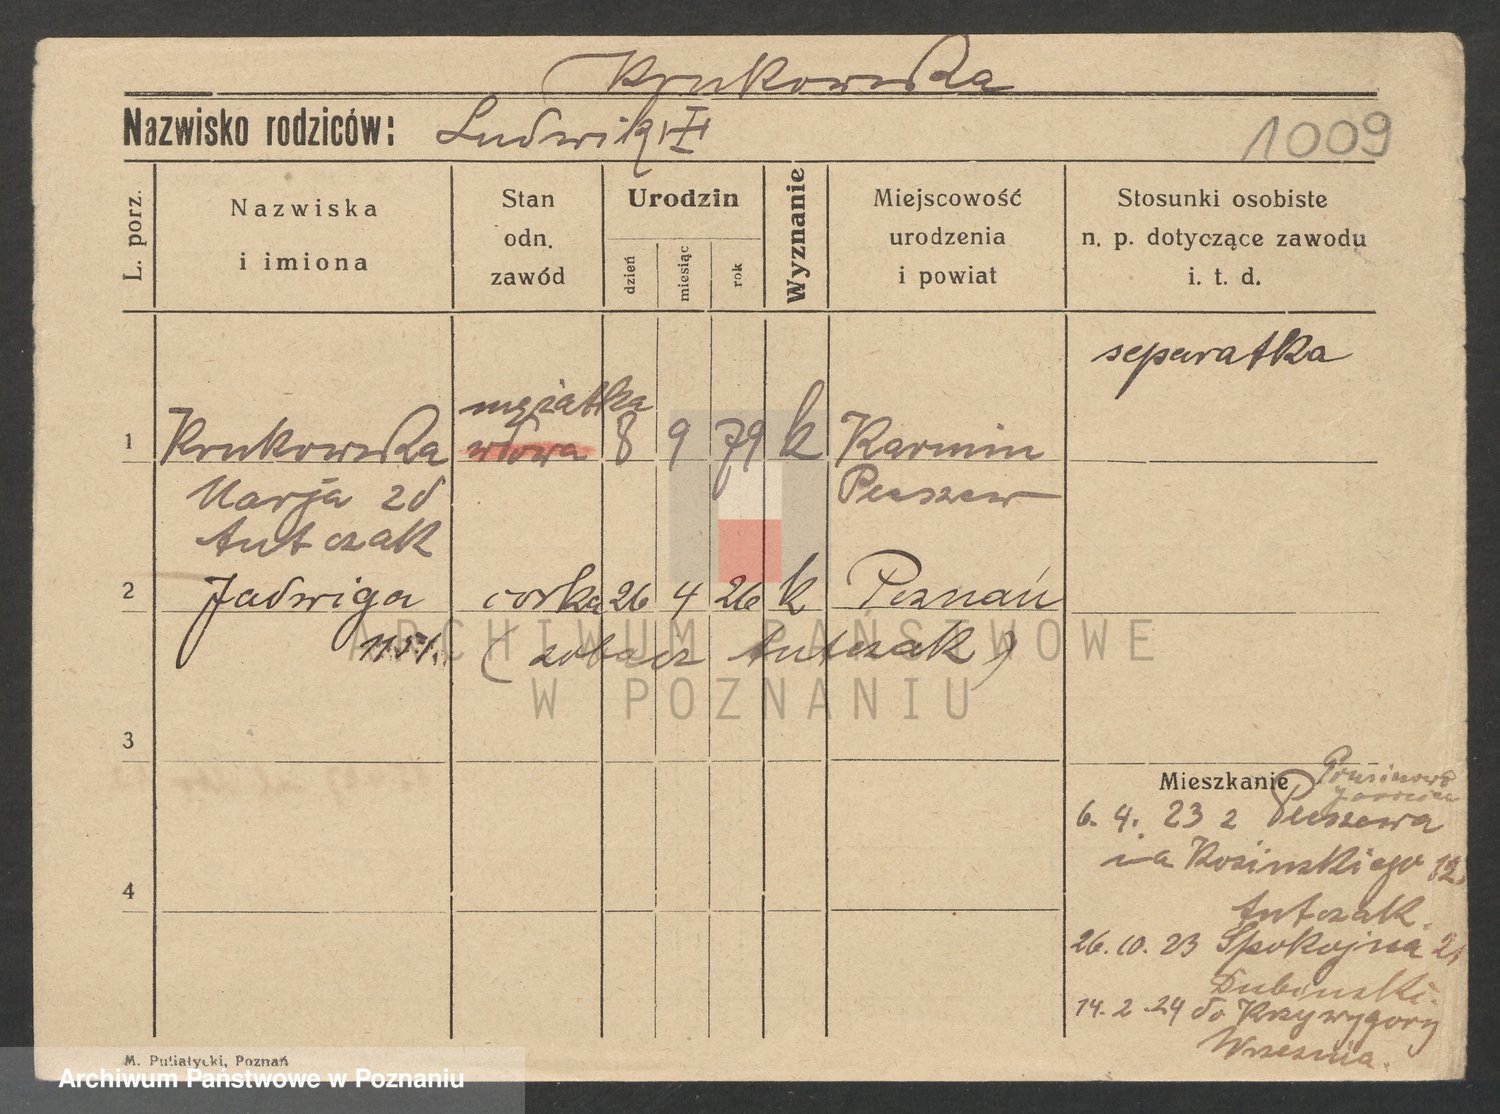 Krukowska
Nazwisko rodziców: Ludwik
1009
L. porz.
Nazwiska
i imiona
Stan
odn.
zawód
Urodzin
dzień
miesiąc
rok
Wyznanie
Miejscowość
urodzenia
i powiat
Stosunki osobiste
n. p. dotyczące zawodu
i. t. d.
separatka
mężatka
1 Krukowska wdowa 8 9 79 k Karmin
Marja zd Pleszew
Antczak
2 Jadwiga córka 26 4 26 k Poznań
(zobacz Antczak)
3
Mieszkanie
6. 4. 23 z Pleszewa
na Kosinskiego 12
4
Antczak.
26. 10. 23 Spokojna 21
14. 2. 24 do Krzywygóry
Wrzesnia.
M. Putiatycki, Poznań
ARCHIWUM PAŃSTWOWE
W POZNANIU
Archiwum Państwowe w Poznaniu